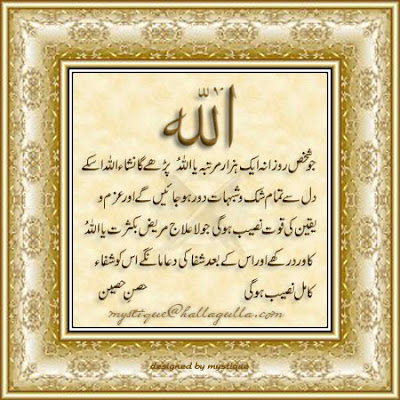 الله
جو شخص روزانہ ایک ہزار مرتبہ یا اللہُ پڑھے گا نشاء اللہ اسکے
دل سے تمام شک و شبہات دور ہو جائیں گے اور عزم و
یقین کی قوت نصیب ہوگی جو لا علاج مریض بکثرت یا اللہُ
کا ورد رکھے اور اس کے بعد شفا کی دعا مانگے اس کو شفاء
کامل نصیب ہوگی حصنِ حصین
mystique@hallagulla.com
designed by mystique